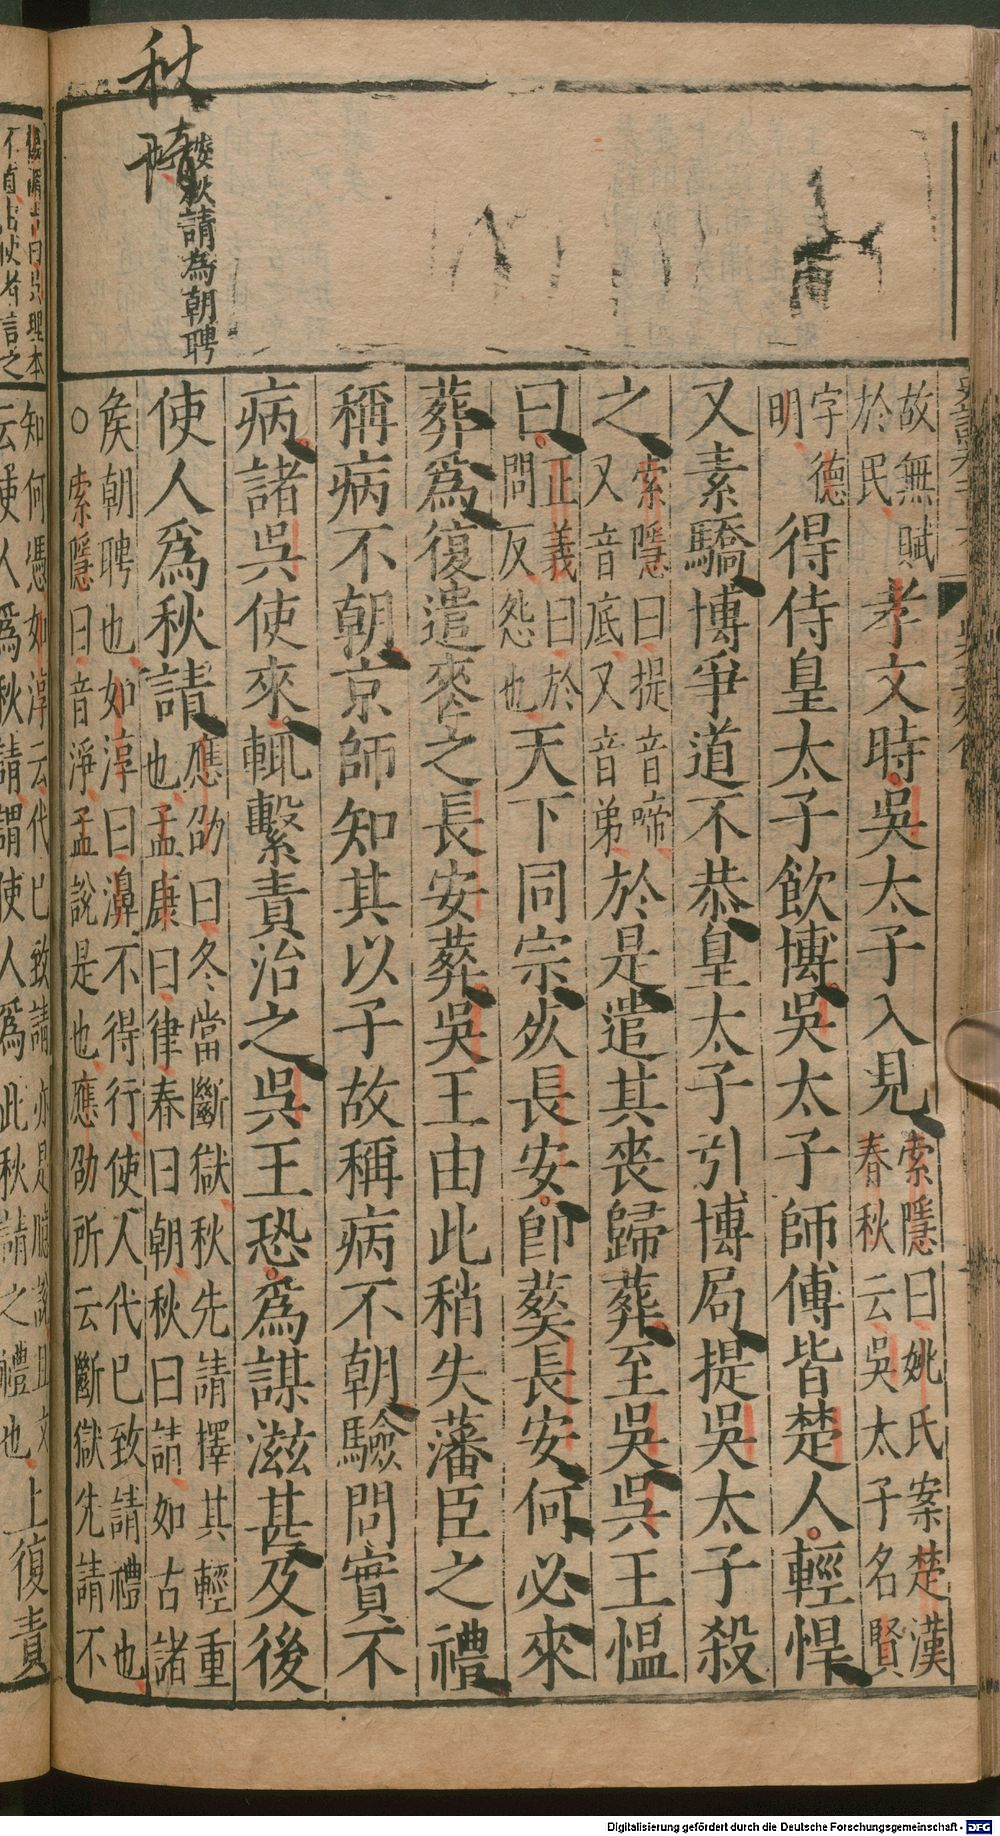 秋請
按秋請為朝聘
故無賦
於民
孝文時吳太子入見
索隱曰姚氏案楚漢
春秋云吳太子名賢
字德
明
得侍皇太子飲博吳太子師傅皆楚人輕悍
又素驕博爭道不恭皇太子引博局提吳太子殺
之
索隱曰提音啼
又音底又音弟
於是遣其喪歸葬至吳吳王慍
曰
正義曰於
問反怨也
天下同宗死長安卽葬長安何必來
葬爲復遣喪之長安葬吳王由此稍失藩臣之禮
稱病不朝京師知其以子故稱病不朝驗問實不
病諸吳使來輒繫責治之吳王恐爲謀滋甚及後
使人爲秋請
應劭曰冬當斷獄秋先請擇其輕重
也孟康曰律春曰朝秋曰請如古諸
矦朝聘也如淳曰濞不得行使人代已致請禮也
○索隱曰音淨孟說是也應劭所云斷獄先請不
知何憑如淳云代已致請亦是臆說且文
云使人爲秋請謂使人爲此秋請之禮也
上復責
Digitalisierung gefördert durch die Deutsche Forschungsgemeinschaft - DFG